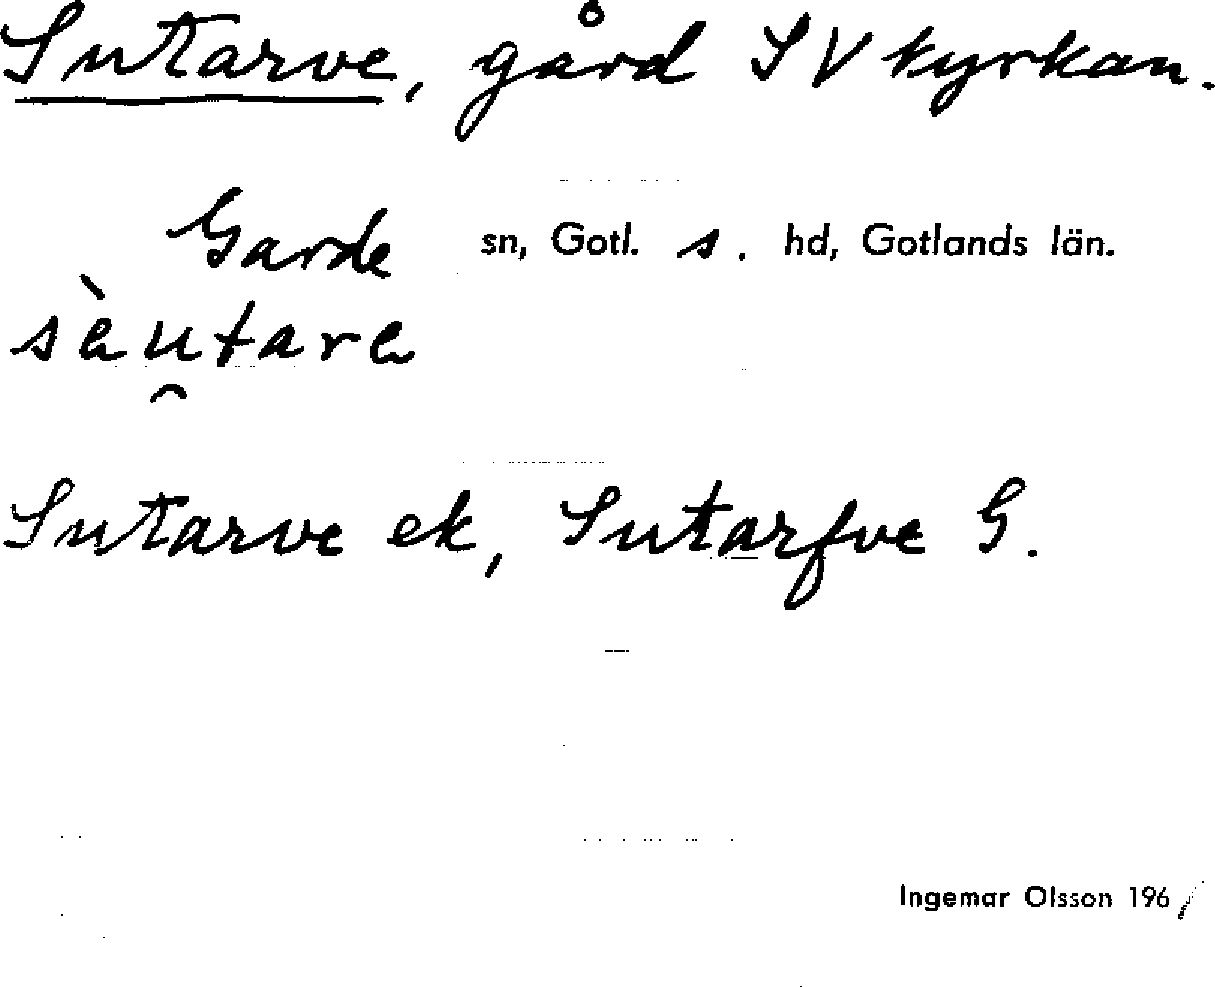 Sutarve, gård SV kyrkan.
Garde sn, Gotl. s. hd, Gotlands län.
sèu̯tara
Sutarve ek, Sutarfve G.
Ingemar Olsson 1961